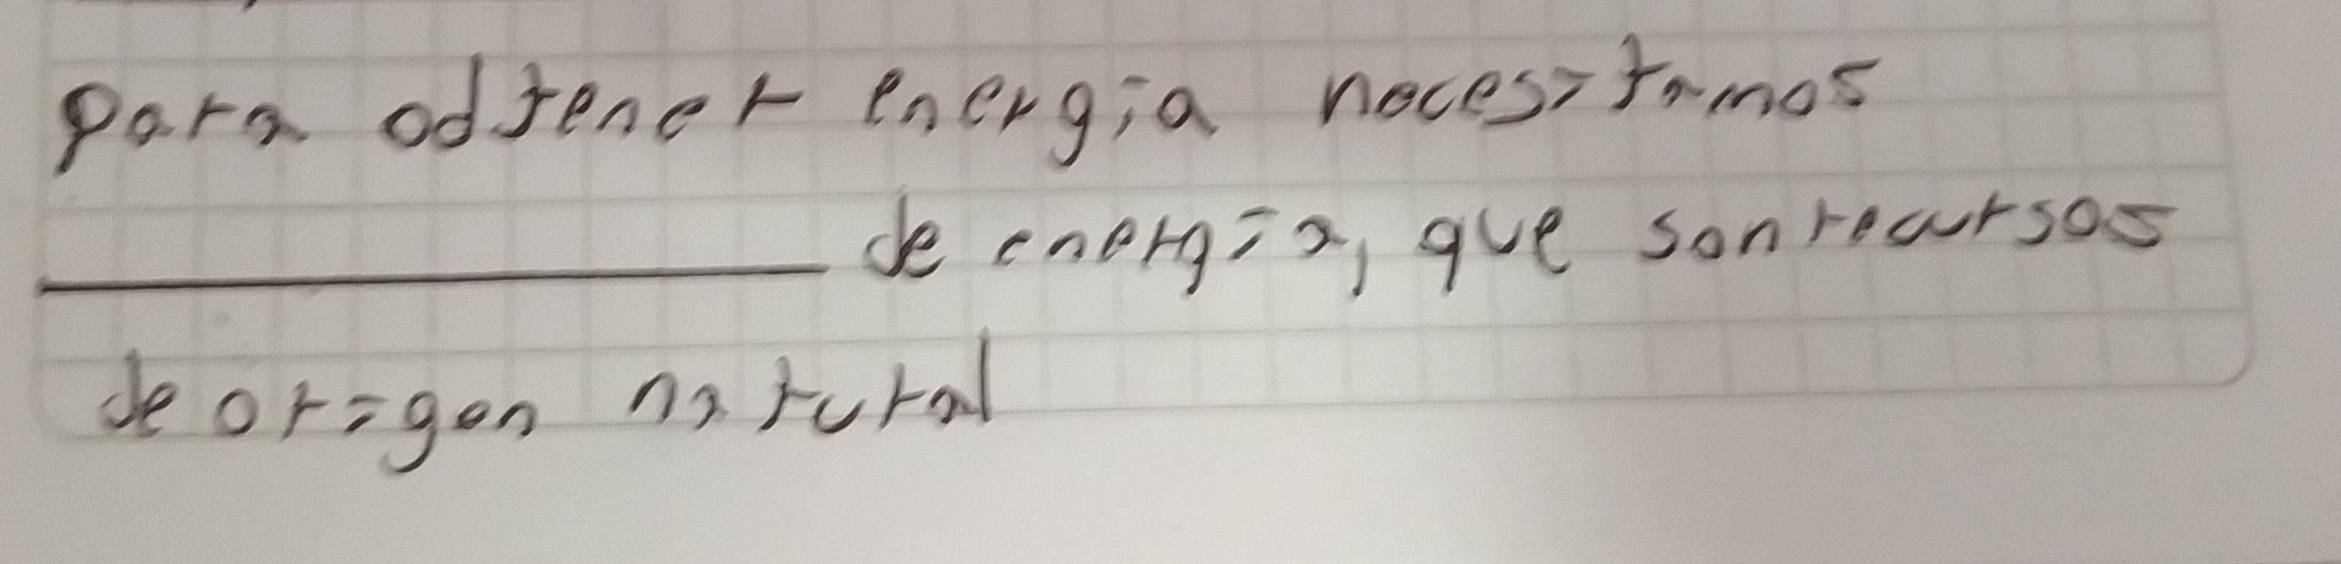 para odtener energia necesitamos
__________ de energia, que son recursos
de origen natural